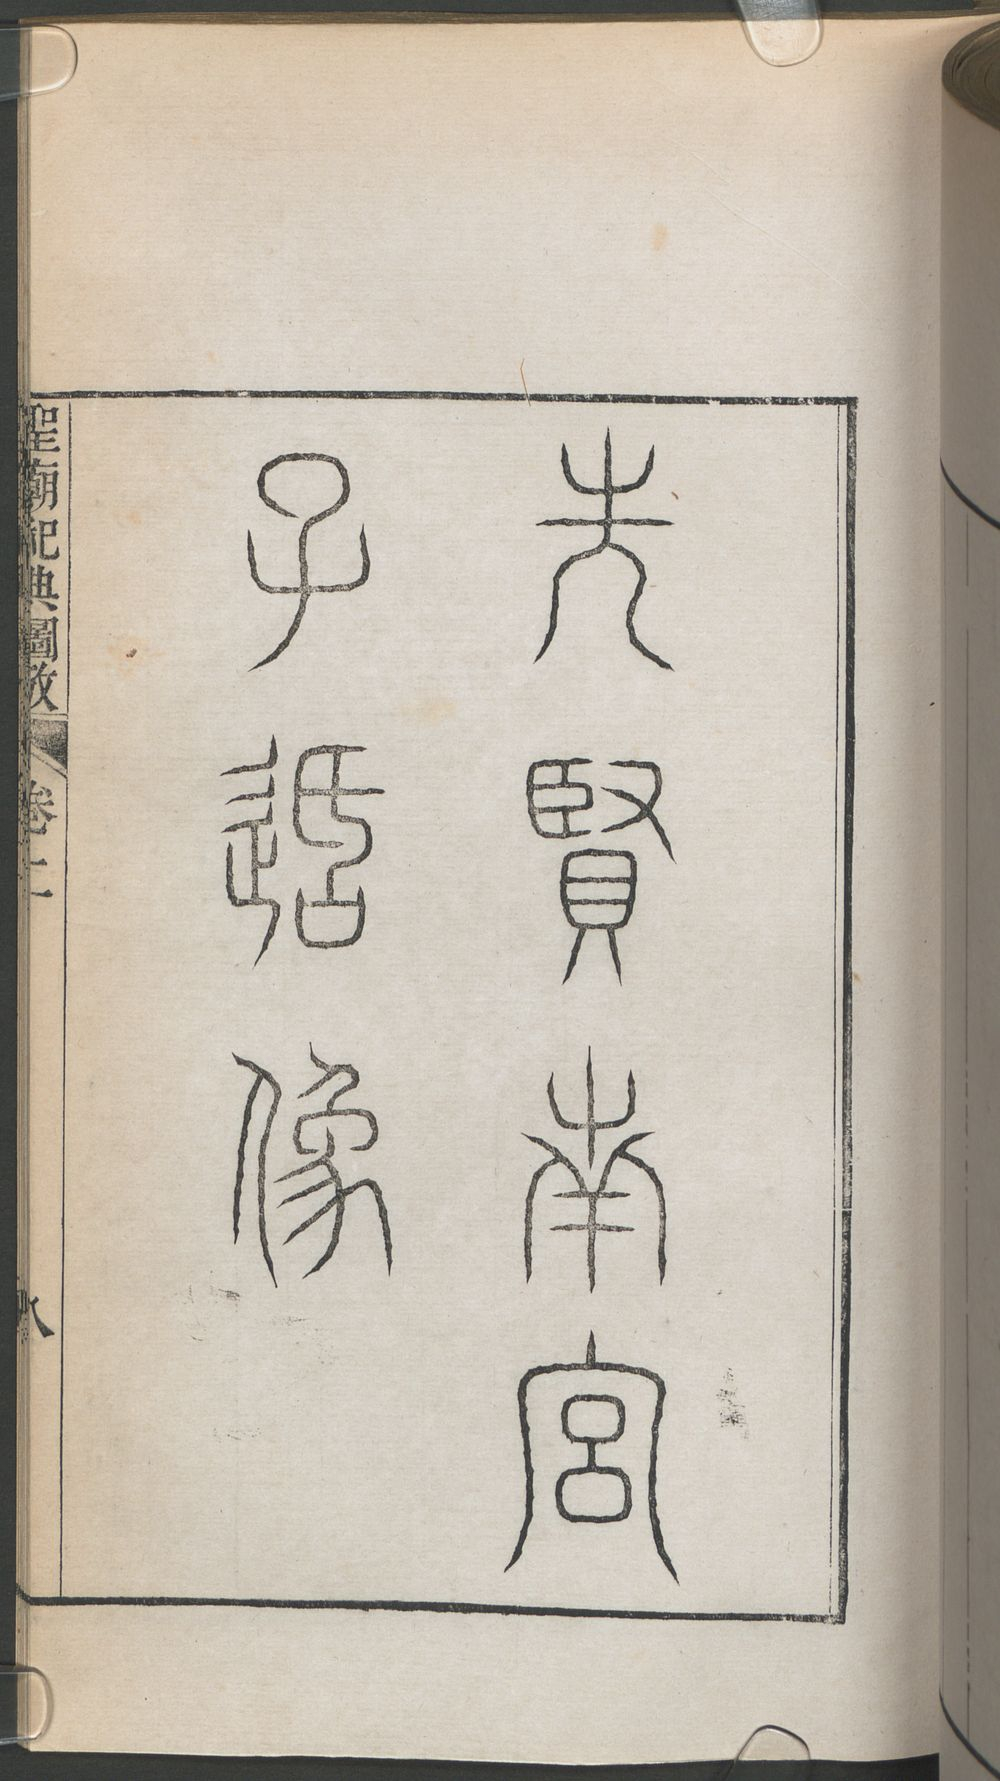 先賢南宮
子适像
聖廟祀典圖攷
卷二
八